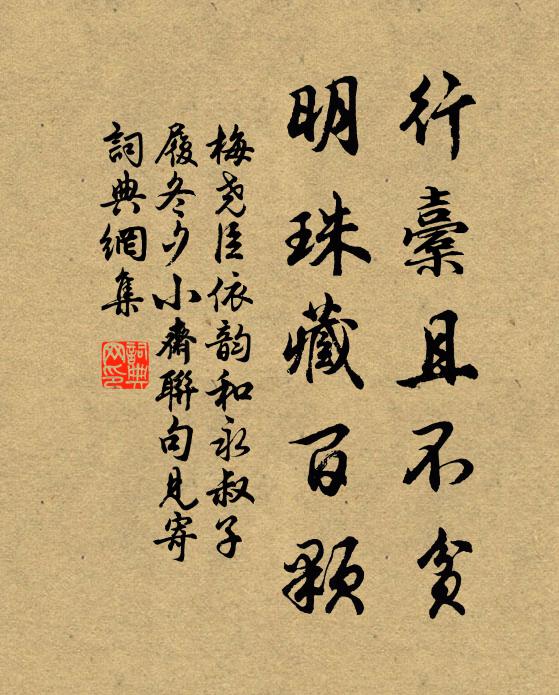 行橐且不貧
明珠藏百顆
梅堯臣依韵和永叔子
履冬夕小齋聯句見寄
詞典網集
詞典網印